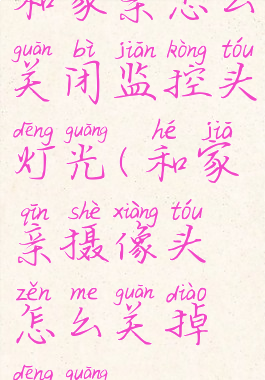 和家亲怎么
guān bì jiān kòng tóu
关闭监控头
dēng guāng hé jiā
灯光(和家
qīn shè xiàng tóu
亲摄像头
zěn me guān diào
怎么关掉
dēng guāng